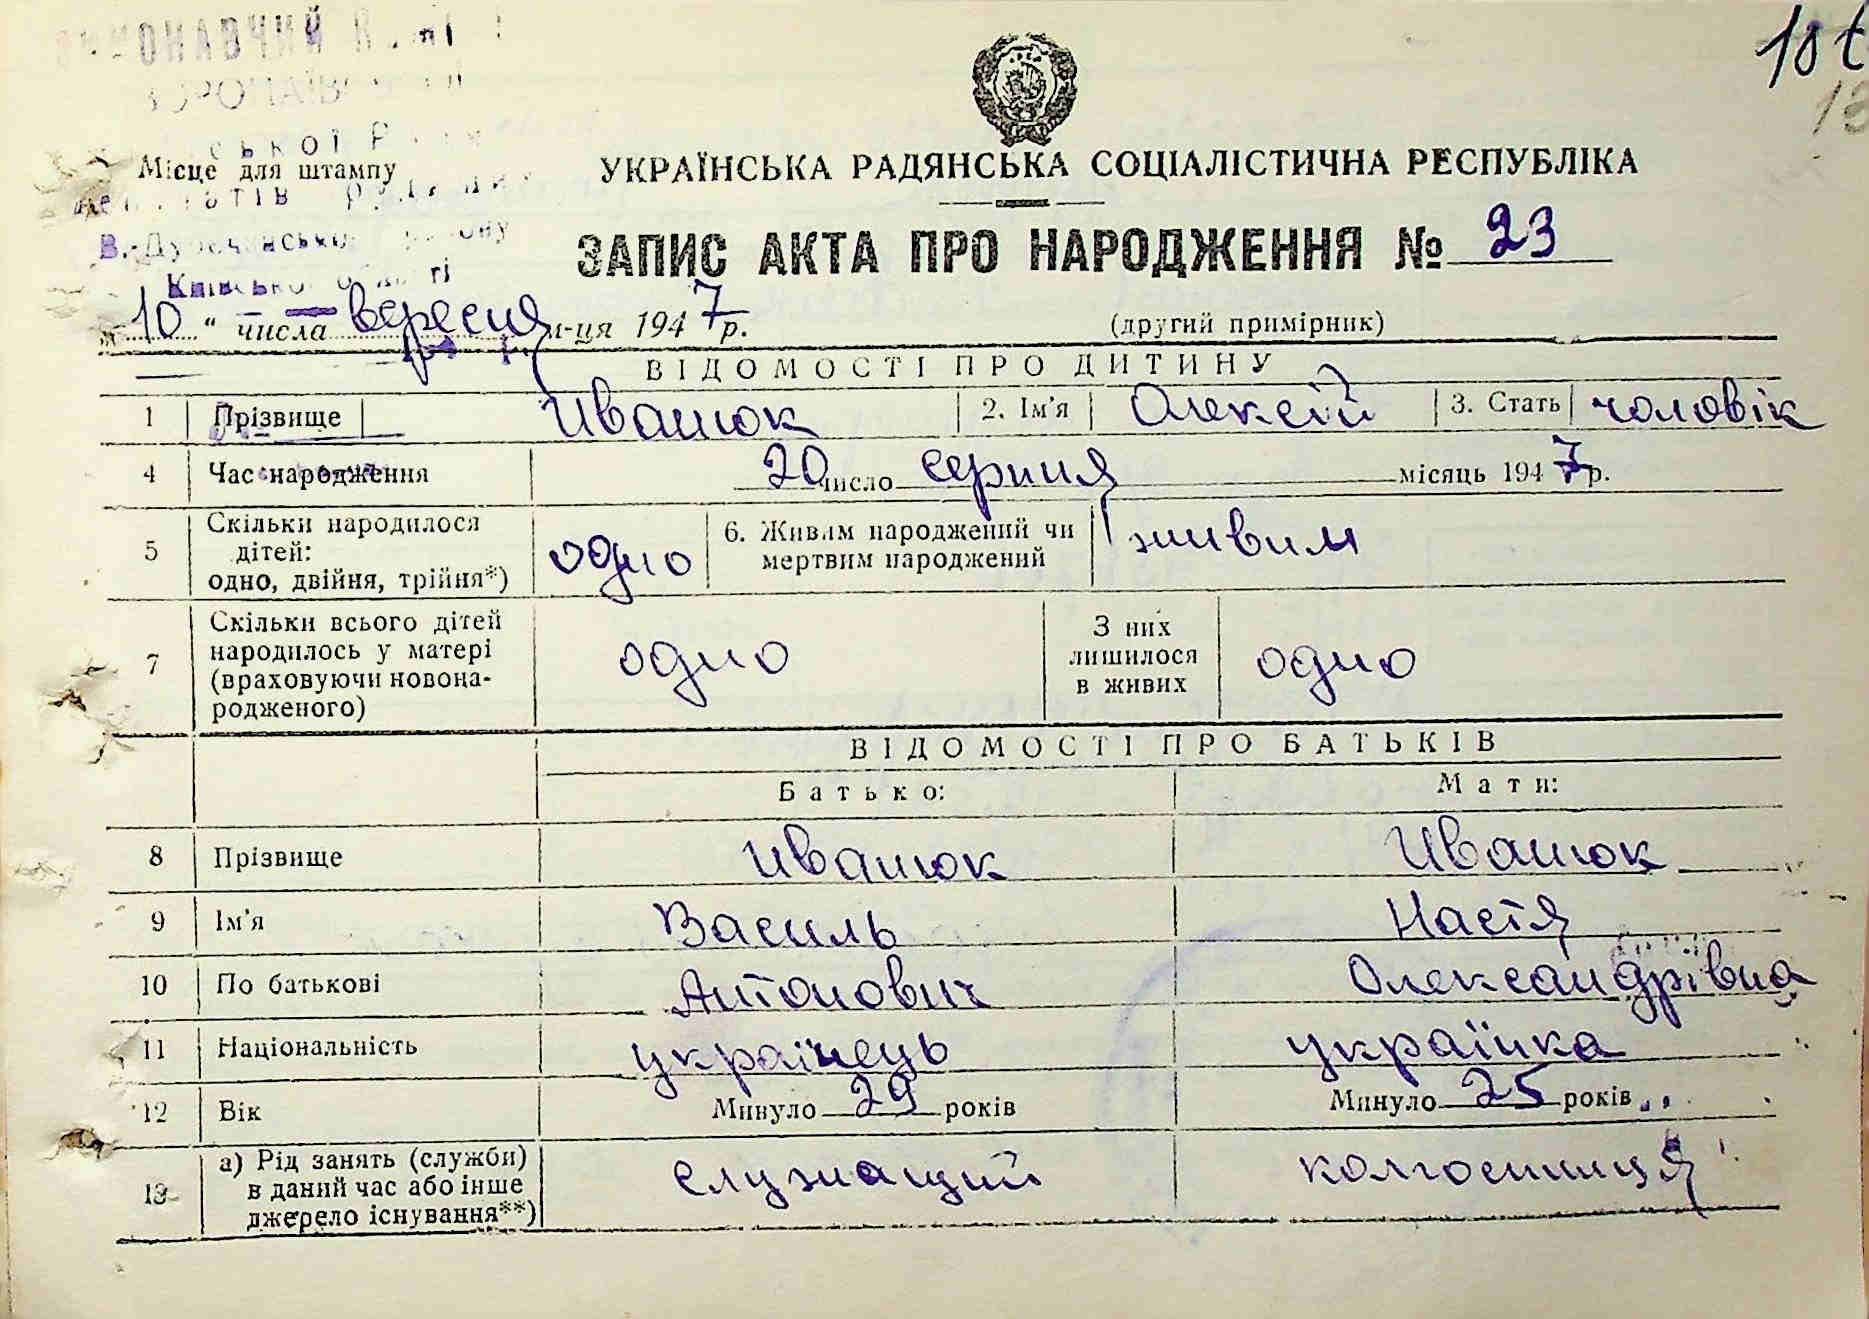 18
ської
Місце для штампу
депутатів трудящих
В.-Дубечанського району
Київської області
УКРАЇНСЬКА РАДЯНСЬКА СОЦІАЛІСТИЧНА РЕСПУБЛІКА
ЗАПИС АКТА ПРО НАРОДЖЕННЯ № 23
„ 10 “ числа вересня м-ця 1947 р.
(другий примірник)
ВІДОМОСТІ ПРО ДИТИНУ
1 Прізвище Ивашок 2. Ім'я Олексій 3. Стать чоловік
4 Час народження 20 число серпня місяць 1947 р.
5 Скільки народилося дітей: одно, двійня, трійня*) одно 6. Живим народжений чи мертвим народжений живим
7 Скільки всього дітей народилось у матері (враховуючи новонародженого) одно З них лишилося в живих одно
ВІДОМОСТІ ПРО БАТЬКІВ
Батько: Мати:
8 Прізвище Иванюк Иванюк
9 Ім'я Василь Настя
10 По батькові Антонович Олександрівна
11 Національність українець українка
12 Вік Минуло 29 років Минуло 25 років
13 а) Рід занять (служби) в даний час або інше джерело існування**) служащий колгоспниця